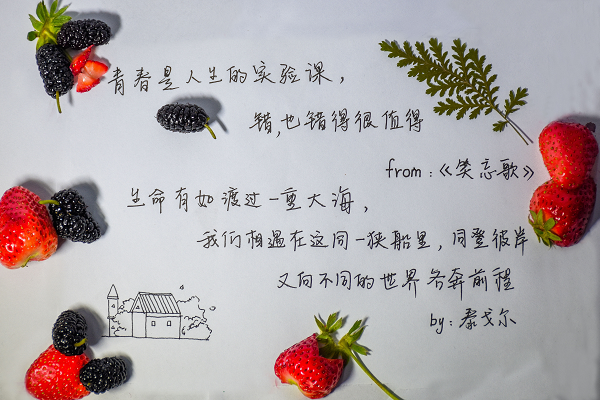 青春是人生的实验课，
错，也错得很值得
from：《笑忘歌》
生命有如渡过一重大海，
我们相遇在这同一狭船里，同登彼岸
又向不同的世界各奔前程
by：泰戈尔